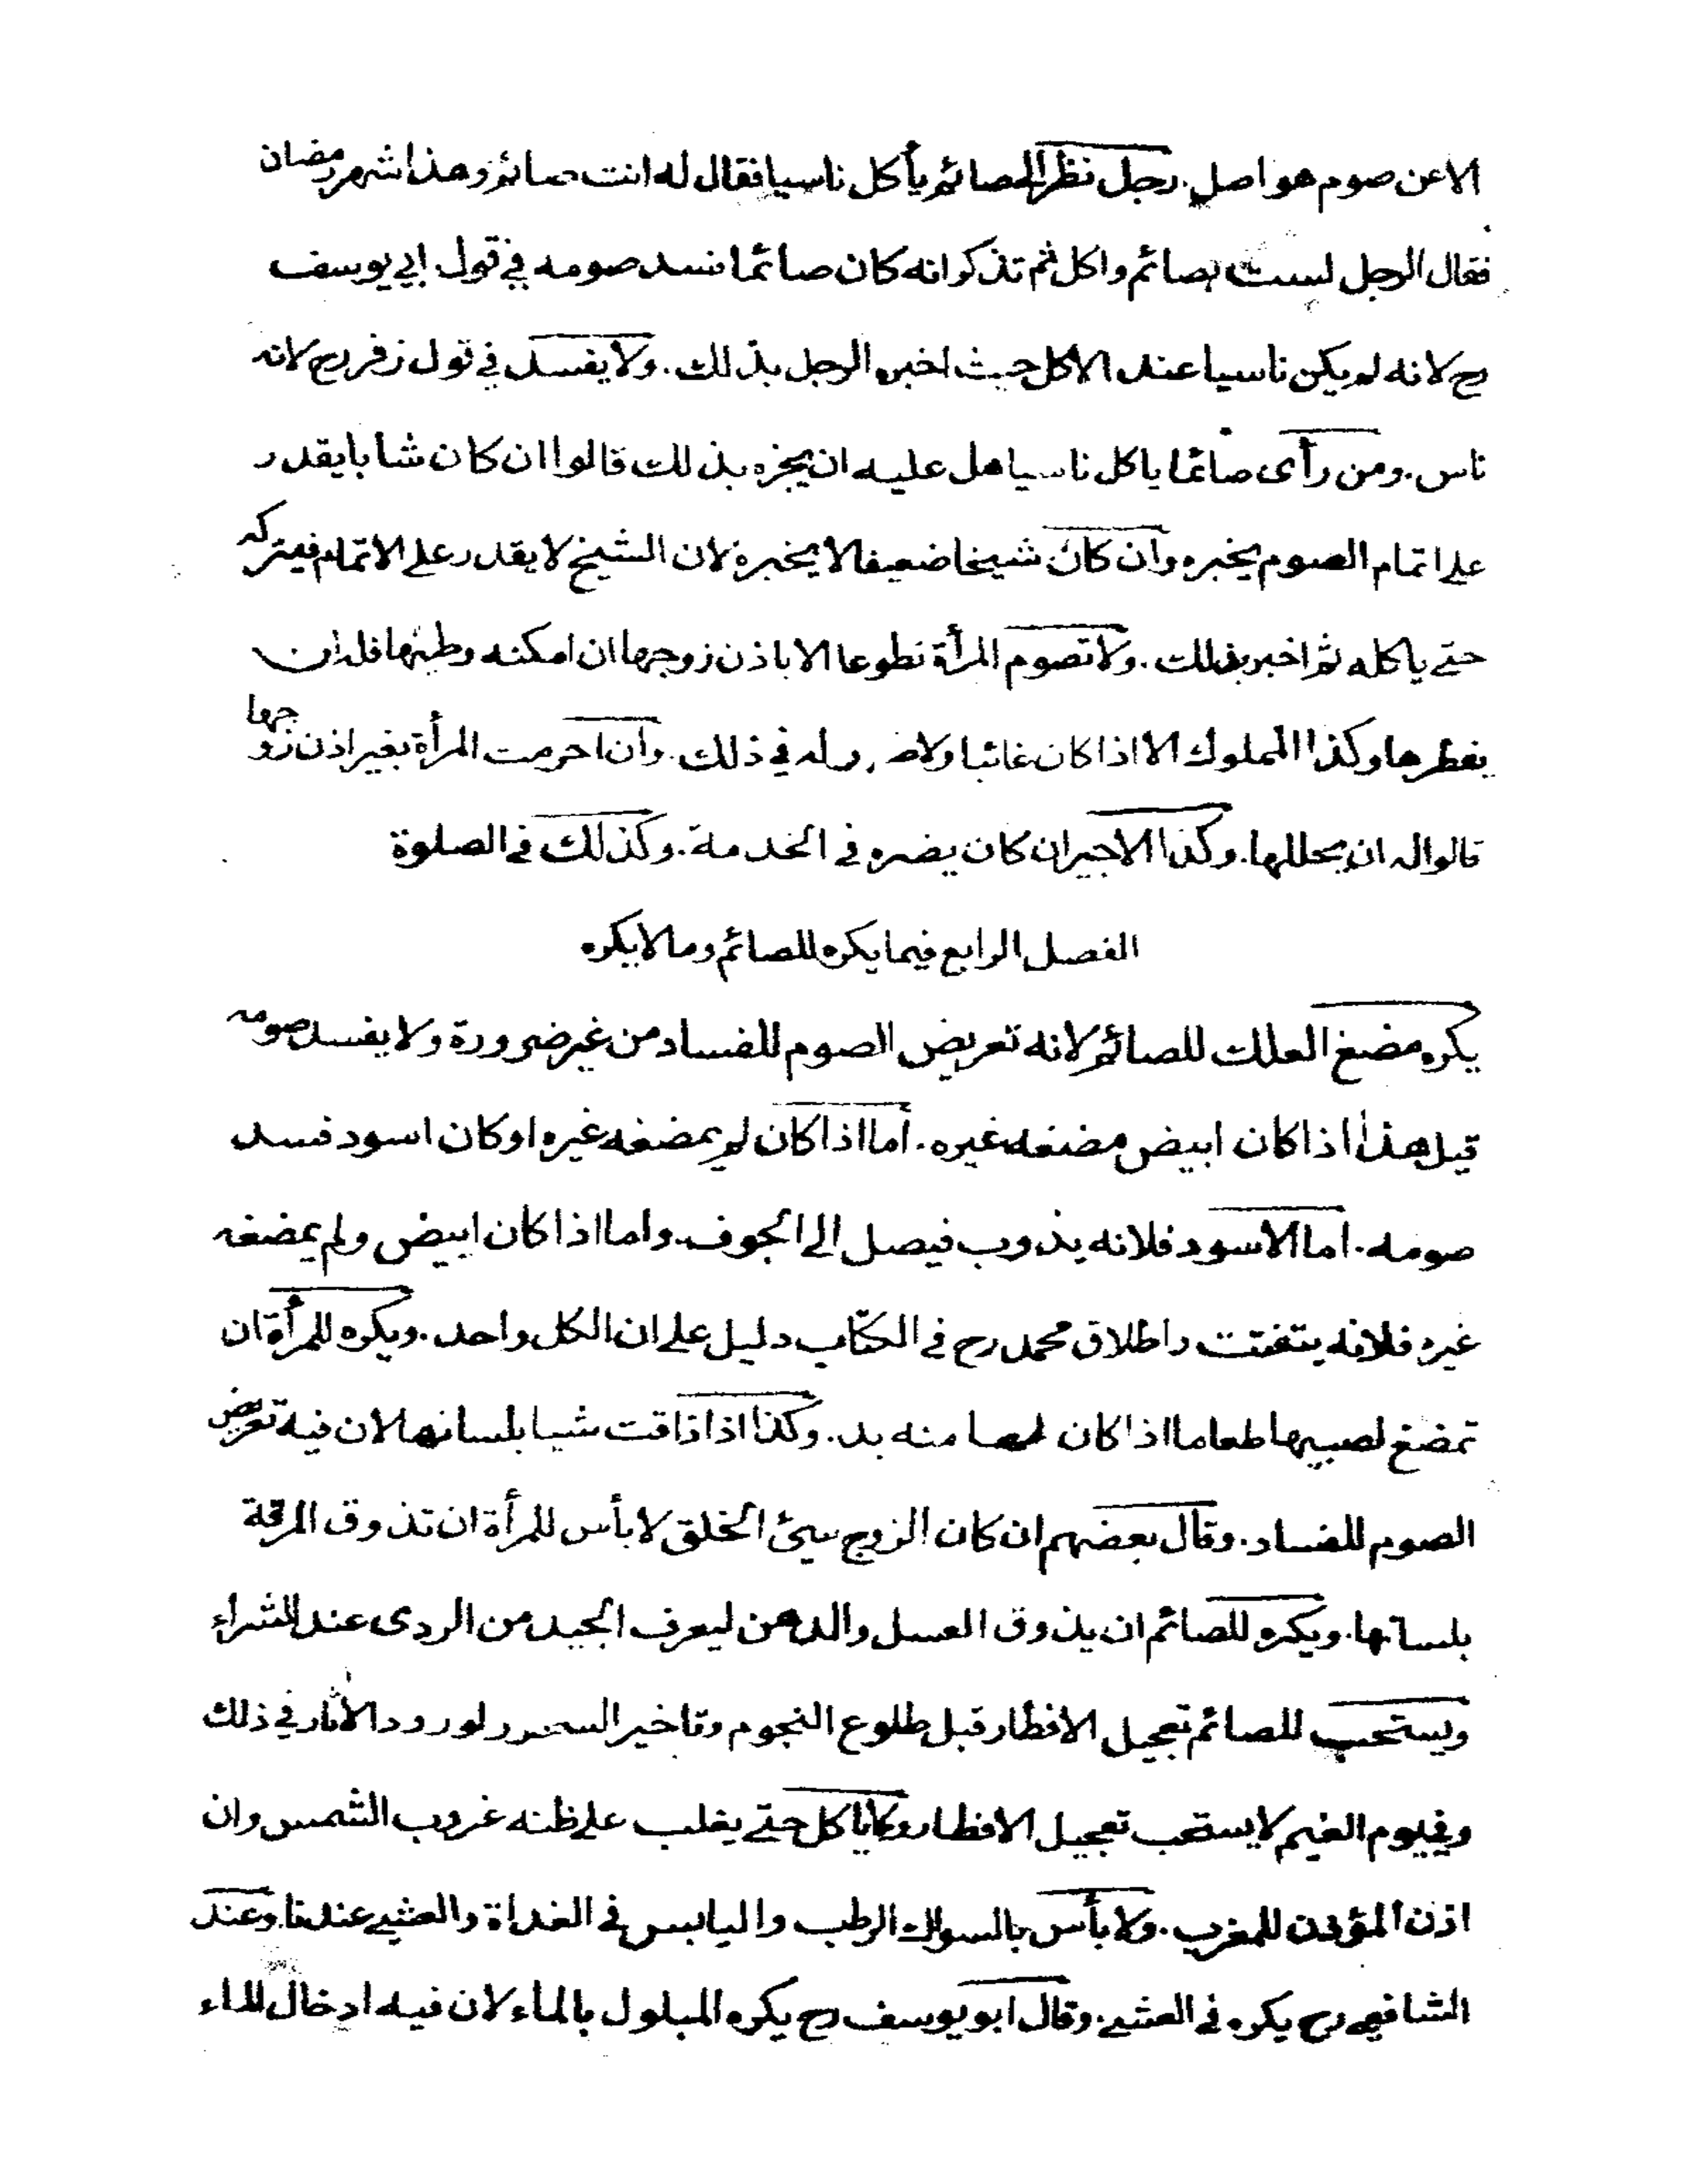 الا عن صوم هو اصل. رجل نظر الى صائم يأكل ناسيا فقال له انت صائم وهذا شهر رمضان
فقال الرجل لست بصائم واكل ثم تذكر انه كان صائما فسد صومه في قول ابي يوسف
رح لانه لم يكن ناسيا عند الاكل حيث اخبره الرجل بذلك. ولا يفسد في قول زفر رح لانه
ناس. ومن رأى صائما ياكل ناسيا هل عليه ان يخبره بذلك قالوا ان كان شابا يقدر
على اتمام الصوم يخبره وان كان شيخا ضعيفا لا يخبره لان الشيخ لا يقدر على الاتمام فيتركه
حتى ياكله ثم اخبر بذلك. ولا تصوم المرأة تطوعا الا باذن زوجها ان امكنه وطئها فله ان
يفطرها وكذا المملوك الا اذا كان غائبا ولا ضرر له في ذلك. وان احرمت المرأة بغير اذن زوجها
قالوا له ان يحللها. وكذا الاجير ان كان يضره في الخدمة. وكذلك في الصلوة
الفصل الرابع فيما يكره للصائم وما لا يكره
يكره مضغ العلك للصائم لانه تعريض الصوم للفساد من غير ضرورة ولا يفسد صومه
قيل هذا اذا كان ابيض مضغه غيره. أما اذا كان لم يمضغه غيره او كان اسود فسد
صومه. اما الاسود فلانه يذوب فيصل الى الجوف. واما اذا كان ابيض ولم يمضغه
غيره فلانه يتفتت واطلاق محمد رح في الكتاب دليل على ان الكل واحد. ويكره للمرأة ان
تمضغ لصبيها طعاما اذا كان لها منه بد. وكذا اذا ذاقت شيا بلسانها لان فيه تعريض
الصوم للفساد. وقال بعضهم ان كان الزوج سيئ الخلق لا بأس للمرأة ان تذوق المرقة
بلسانها. ويكره للصائم ان يذوق العسل والدهن ليعرف الجيد من الردى عند الشراء
ويستحب للصائم تعجيل الافطار قبل طلوع النجوم وتاخير السحور لورود الأثار في ذلك
وفي يوم الغيم لا يستحب تعجيل الافطار ولا ياكل حتى يغلب على ظنه غروب الشمس وان
اذن المؤذن للمغرب. ولا بأس بالسواك الرطب واليابس في الغداة والعشي عندنا. وعند
الشافعي رح يكره في العشي. وقال ابو يوسف رح يكره المبلول بالماء لان فيه ادخال الماء